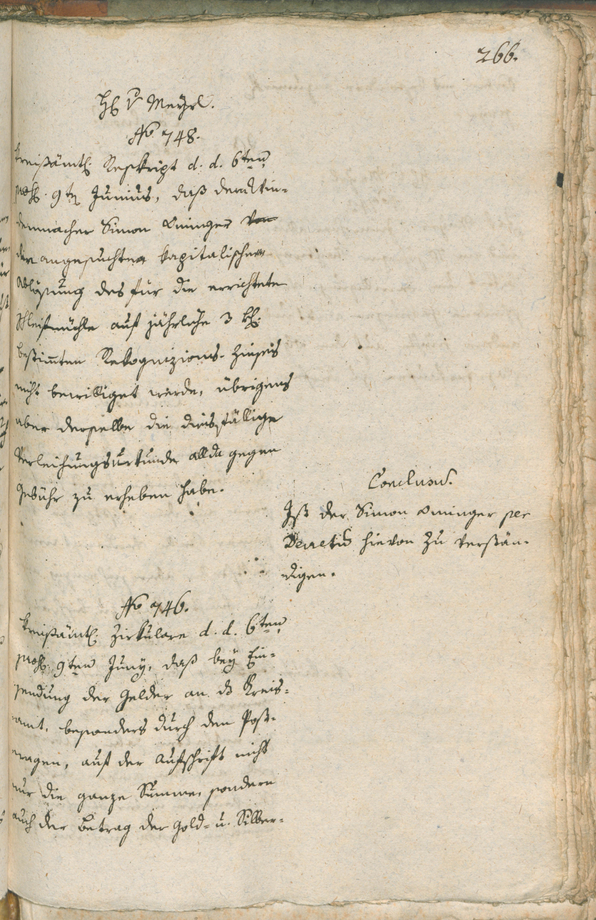 266.
H. v. Meyrl.
No 748.
Kreißämtl. Reskript d. d. 6ten
präs. 9ten Junius, daß dem
macher Simon Aninger
die angesuchte kapitalische
Ablösung des für die errichtete
Schleifmühle auf jährliche 3 kr.
bestimmten Rekognizions-Zinses
nicht bewilliget werde, übrigens
aber derselbe die diesfällige
Verleihungsurkunde allda gegen
Gebühr zu erheben habe.
Conclusum.
Ist der Simon Aninger per
Decretum hievon zu verstän-
digen.
No 746.
Kreißämtl. Zirkulare d. d. 6ten
präs. 9ten Juny, daß bey Ein-
sendung der Gelder an das Kreis-
amt, besonders durch den Post-
wagen, auf der Aufschrift nicht
nur die ganze Summe, sondern
auch der Betrag der Gold- u. Silber-